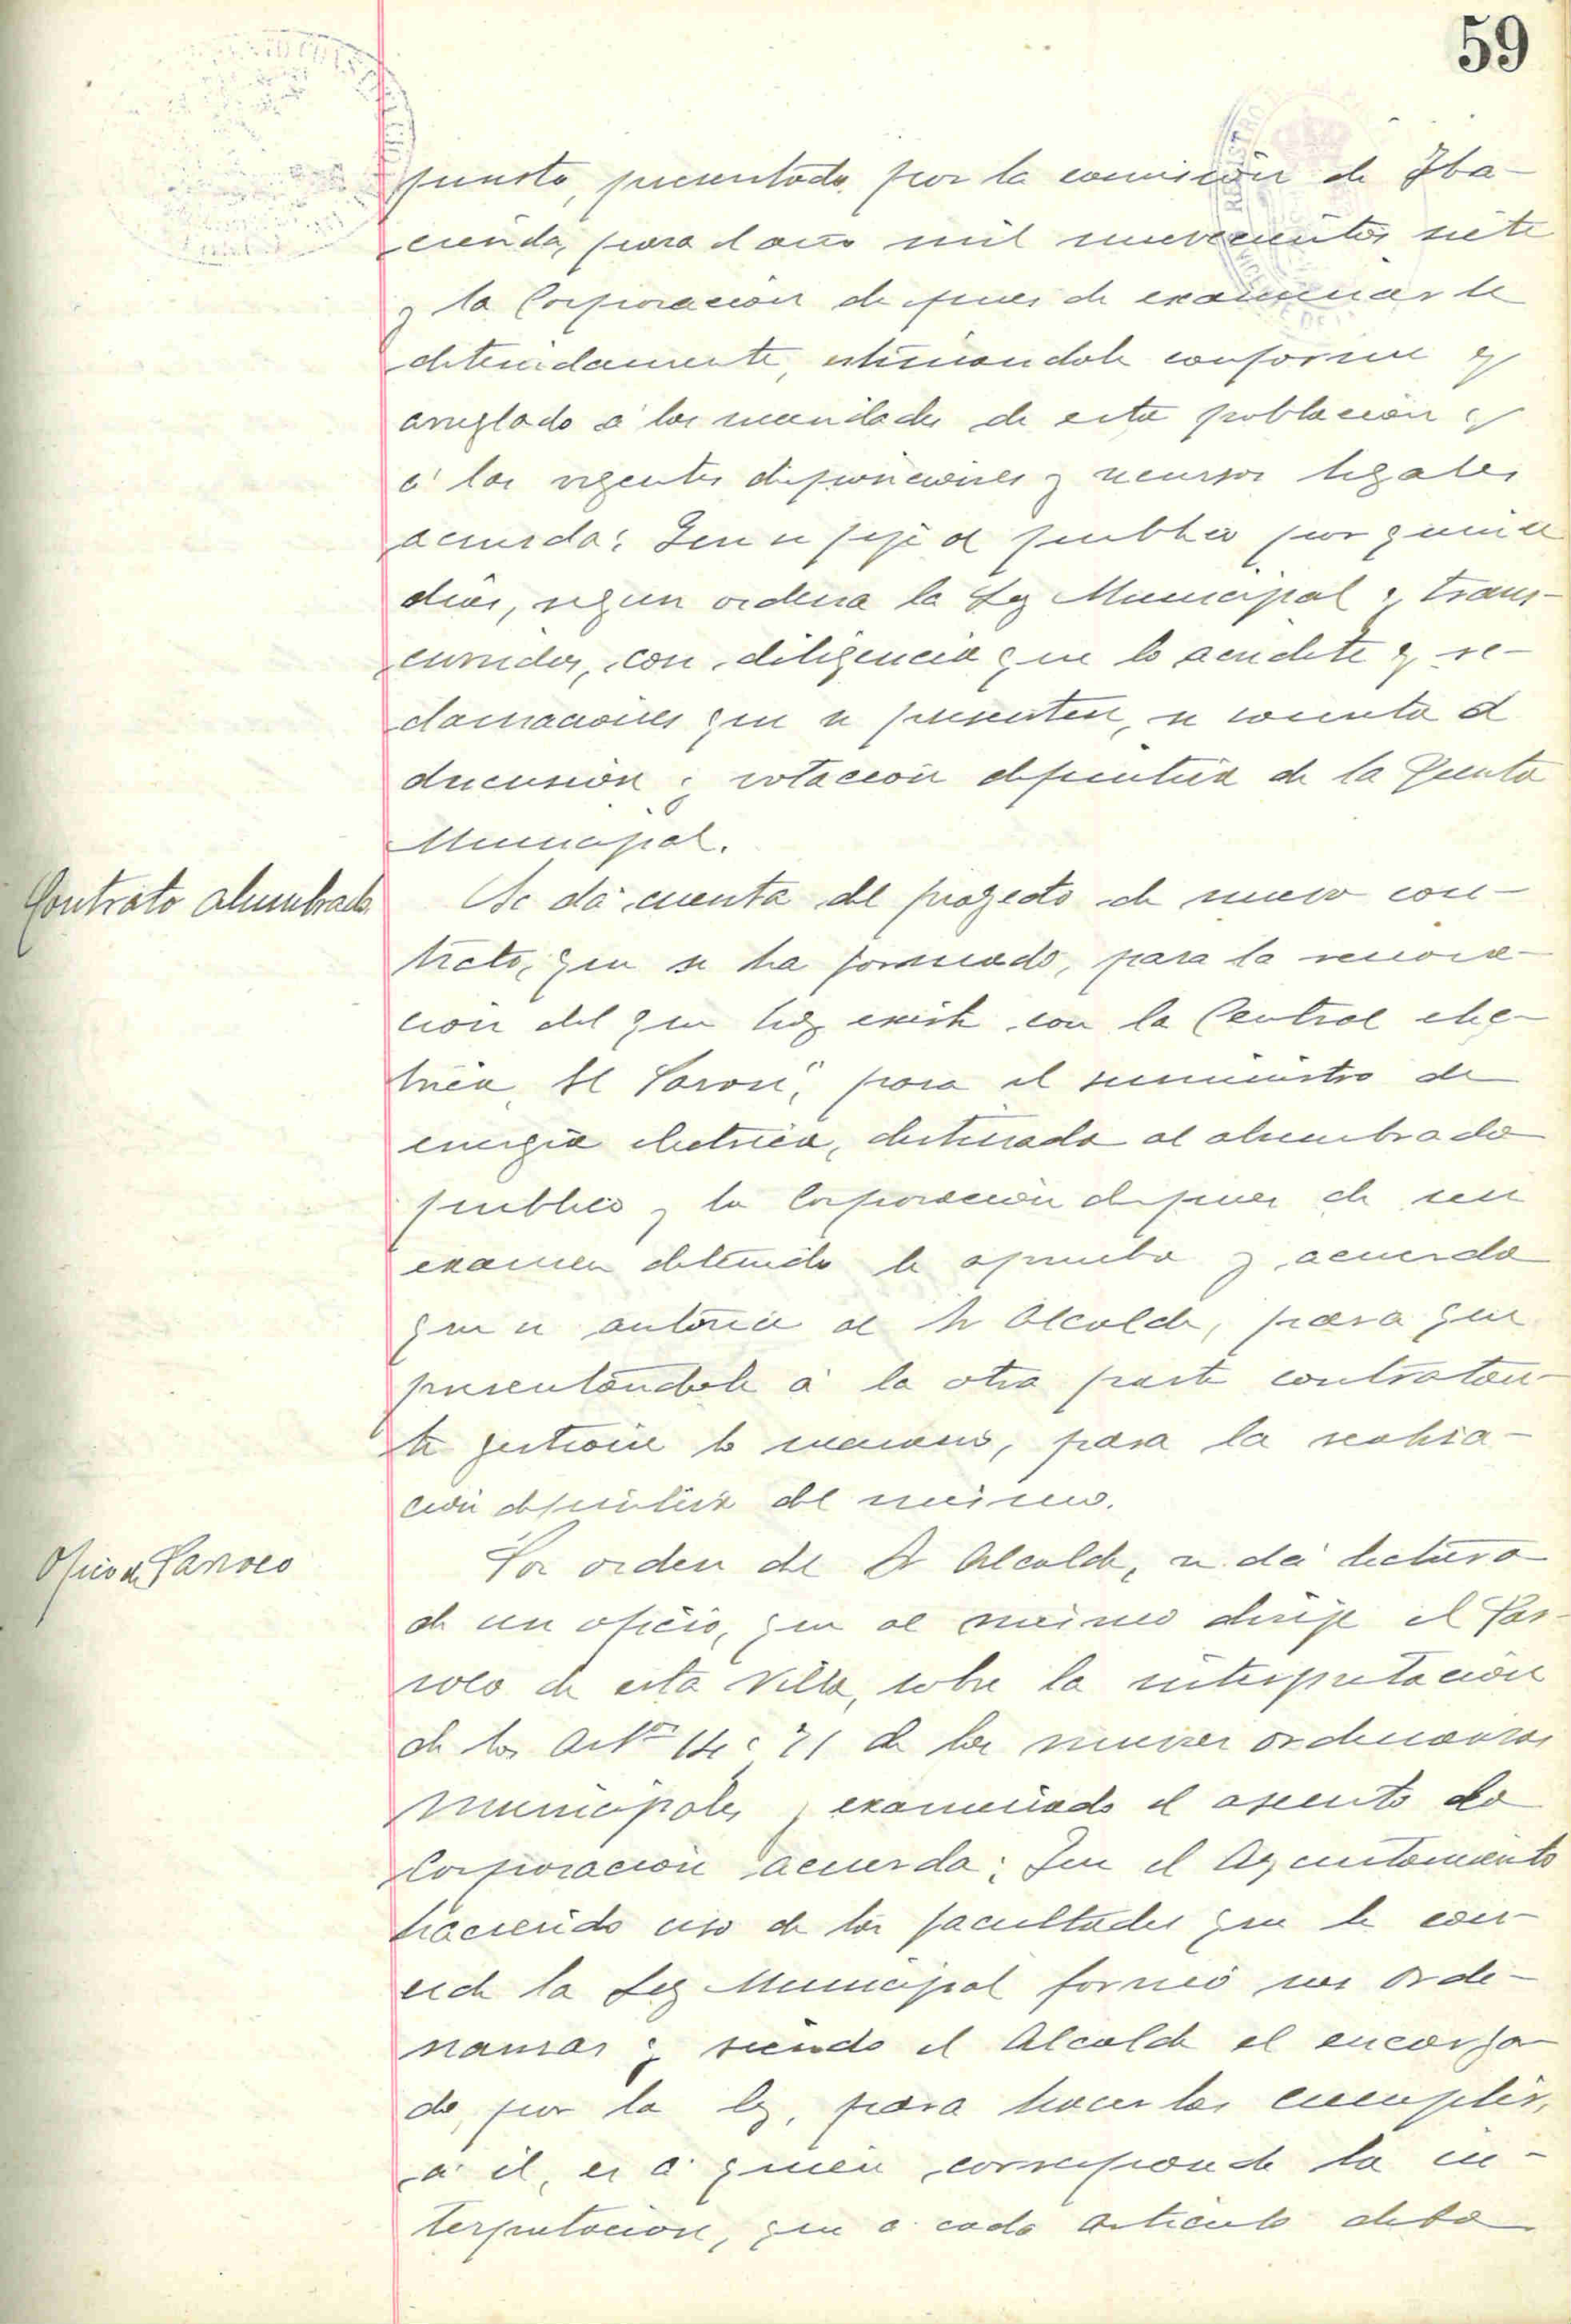 59
puesto, presentado por la comision de Ha-
cienda, para el año mil novecientos siete
y la Corporacion despues de examinarle
detenidamente, estimandole conforme y
arreglado á las necesidades de esta poblacion y
á las vigentes disposiciones y recursos legales
acuerda: Que se fije al publico por quince
dias, segun ordena la Ley Municipal y, trans-
curridos, con diligencia que lo acredite y re-
clamaciones que se presenten, se someta á
discusion y votación definitiva de la Junta
Municipal.
Contrato alumbrado
Se dá cuenta del proyecto de nuevo con-
trato, que se ha formado, para la renova-
cion del que hoy existe con la Central elec-
trica, El para el suministro de
energia electrica, destinada al alumbrado
publico y la Corporación despues de un
examen detenido le aprueba y acuerda
que se autorice al Sr Alcalde, para que
presentándole á la otra parte contratan-
te gestione lo necesario, para la realiza-
ción definitiva del mismo.
Oficio de Parroco
Por orden del Sr Alcalde, se dá lectura
de un oficio, que al mismo dirije el Par-
roco de esta Villa, sobre la interpretación
de los Artos 14 y 71 de las nuevas ordenanzas
Municipales y examinado el asunto la
Corporación acuerda: Que el Ayuntamiento
haciendo uso de las facultades que le con-
cede la Ley Municipal formó sus Orde-
nanzas y siendo el Alcalde el encarga-
do, por la ley, para hacerlas cumplir,
á él, es á quien corresponde la in-
terpretacion, que á cada articulo deba